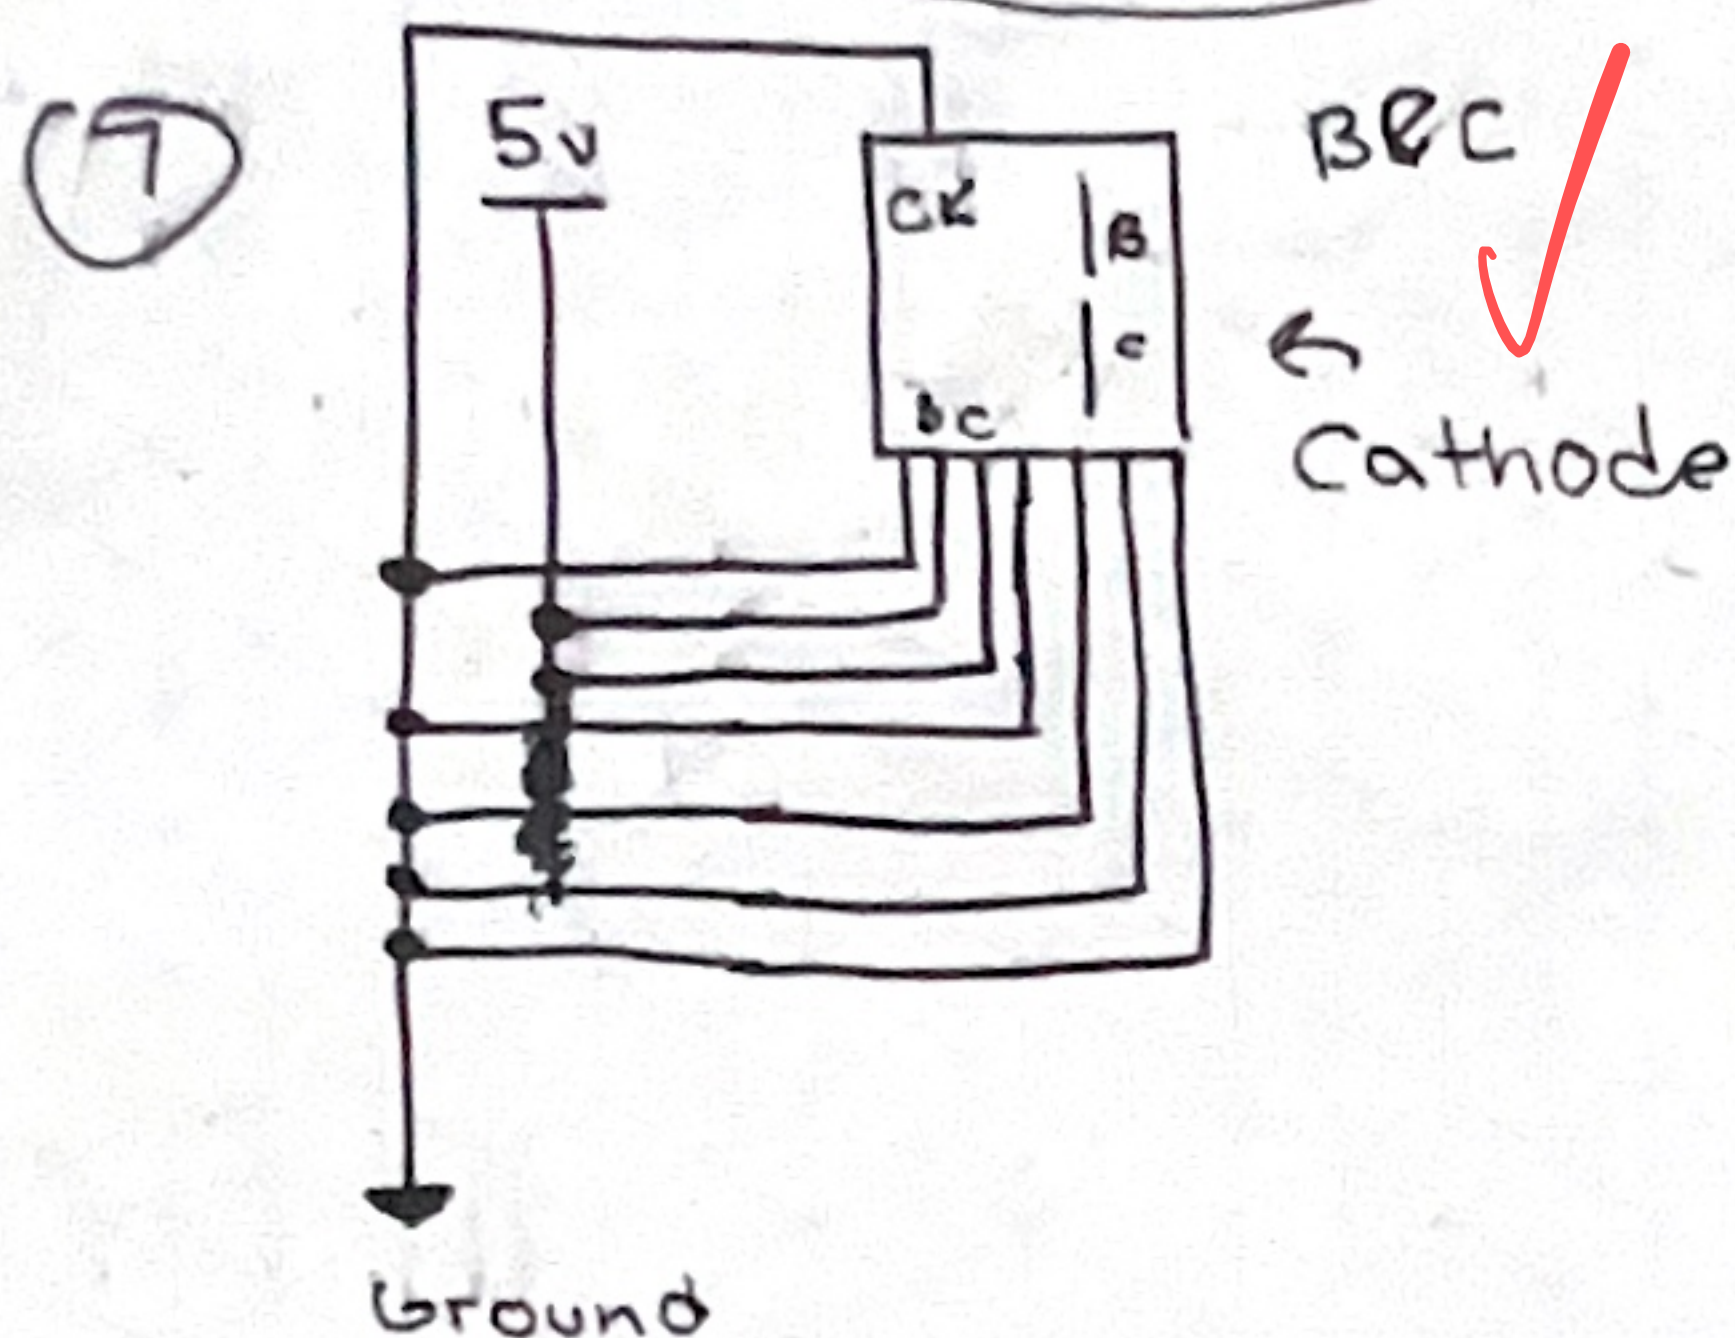 7
5v
BEC
CK
B
C
bc
Cathode
Ground